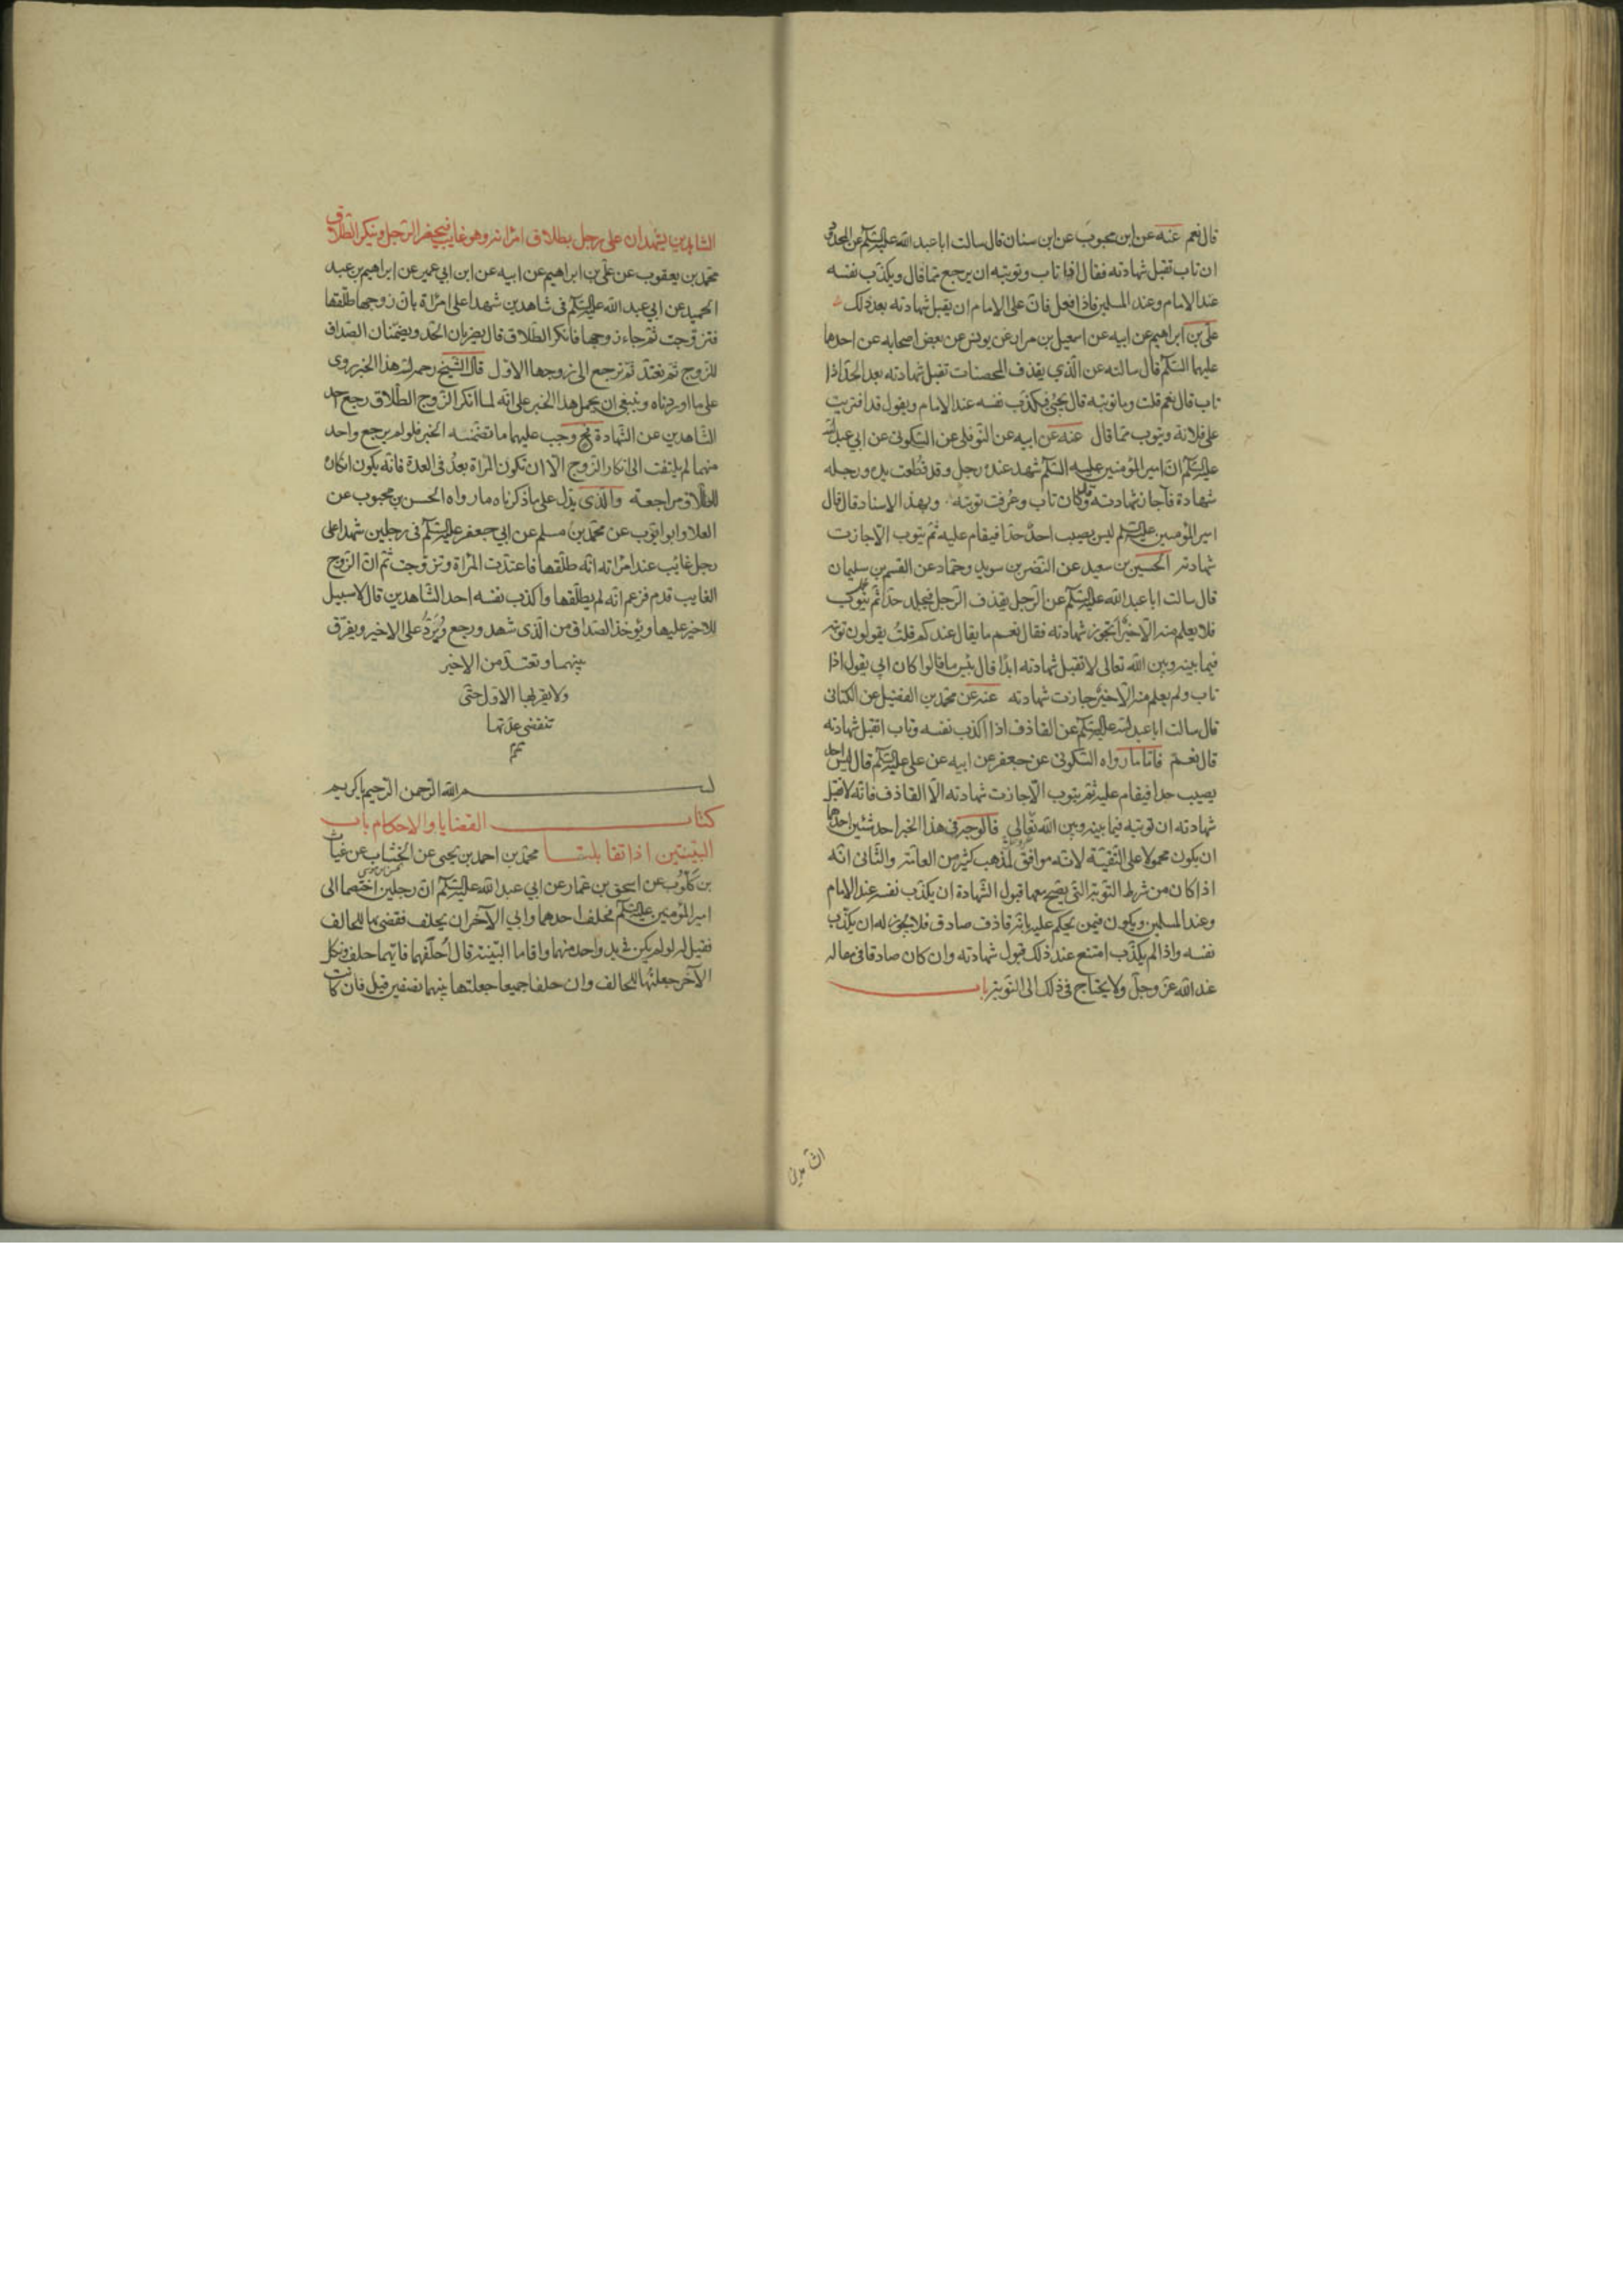 قال نعم عنه عن ابن محبوب عن ابن سنان قال سالت ابا عبد الله عليه السلم عن المحدود
ان تاب تقبل شهادته فقال اذا تاب وتوبته ان يرجع مما قال ويكذب نفسه
عند الامام وعند المسلمين فاذا فعل فان على الامام ان يقبل شهادته بعد ذلك
علي بن ابراهيم عن ابيه عن اسمعيل بن مرار عن يونس عن بعض اصحابه عن احدهما
عليهما السلم قال سالته عن الذي يقذف المحصنات تقبل شهادته بعد الحد اذا
تاب قال نعم قلت وما توبته قال يجئ فيكذب نفسه عند الامام ويقول قد افتريت
على فلانة ويتوب مما قال عنه عن ابيه عن النوفلي عن السكوني عن ابي عبد الله
عليه السلم ان امير المؤمنين عليه السلم شهد عنده رجل وقد قطعت يده ورجله
شهادة فاجاز شهادته وقد كان تاب وعرفت توبته وبهذا الاسناد قال قال
امير المؤمنين عليه السلم ليس يصيب احد حدا فيقام عليه ثم يتوب الا جازت
شهادته الحسين بن سعيد عن النضر بن سويد وحماد عن القسم بن سليمان
قال سالت ابا عبد الله عليه السلم عن الرجل يقذف الرجل فيجلد حدا ثم يتوب
فلا يعلم منه الا خيرا تجوز شهادته فقال نعم ما يقال عندكم قلت يقولون توبته
فيما بينه وبين الله تعالى لا تقبل شهادته ابدا قال بئس ما قالوا كان ابي يقول اذا
تاب ولم يعلم منه الا خير جازت شهادته عنه عن محمد بن الفضيل عن الكناني
قال سالت ابا عبد الله عليه السلم عن القاذف اذا اكذب نفسه وتاب اتقبل شهادته
قال نعم فاما ما رواه السكوني عن جعفر عن ابيه عن علي عليه السلم قال ليس احد
يصيب حدا فيقام عليه ثم يتوب الا جازت شهادته الا القاذف فانه لا تقبل
شهادته ان توبته فيما بينه وبين الله تعالى فالوجه في هذا الخبر احد شئين احدهما
ان يكون محمولا على التقية لانه موافق لمذهب كثير من العامة والثاني انه
اذا كان من شرط التوبة التي يصح معها قبول الشهادة ان يكذب نفسه عند الامام
وعند المسلمين ويكون فيمن يحكم عليه بانه قاذف صادق فلا يجوز له ان يكذب
نفسه واذا لم يكذب امتنع عند ذلك قبول شهادته وان كان صادقا في مقاله
عند الله عز وجل ولا يحتاج في ذلك الى التوبة باب
الشاهدين يشهدان على رجل بطلاق امراته وهو غايب فيحضر الرجل وينكر الطلاق
محمد بن يعقوب عن علي بن ابراهيم عن ابيه عن ابن ابي عمير عن ابراهيم بن عبد
الحميد عن ابي عبد الله عليه السلم في شاهدين شهدا على امراة بان زوجها طلقها
فتزوجت ثم جاء زوجها فانكر الطلاق قال يضربان الحد ويضمنان الصداق
للزوج ثم تعتد ثم ترجع الى زوجها الاول قال الشيخ رحمه الله هذا الخبر روى
على ما اوردناه وينبغي ان يحمل هذا الخبر على انه لما انكر الزوج الطلاق رجع احد
الشاهدين عن الشهادة فح وجب عليهما ما تضمنه الخبر فلو لم يرجع واحد
منهما لم يلتفت الى انكار الزوج الا ان تكون المراة بعد في العدة فانه يكون انكاره
للطلاق مراجعة والذي يدل على ما ذكرناه ما رواه الحسن بن محبوب عن
العلا وابو ايوب عن محمد بن مسلم عن ابي جعفر عليه السلم في رجلين شهدا على
رجل غائب عند امراته انه طلقها فاعتدت المراة وتزوجت ثم ان الزوج
الغايب قدم فزعم انه لم يطلقها واكذب نفسه احد الشاهدين قال لا سبيل
للاخير عليها ويؤخذ الصداق من الذي شهد ورجع ويرد على الاخير ويفرق
بينهما وتعتد من الاخير
ولا يقربها الاول حتى
تنقضي عدتها
تم
بسم الله الرحمن الرحيم يا كريم
كتاب القضايا والاحكام باب
البينتين اذا تقابلتا محمد بن احمد بن يحيى عن الخشاب عن غياث
بن كلوب عن اسحق بن عمار عن ابي عبد الله عليه السلم ان رجلين اختصما الى
امير المؤمنين عليه السلم فحلف احدهما وابي الآخر ان يحلف فقضى بها للحالف
فقيل له لو لم يكن في يد واحد منهما واقاما البينة قال احلفهما فايهما حلف ونكل
الآخر جعلتها للحالف وان حلفا جميعا جعلتها بينهما نصفين قيل فان كانت